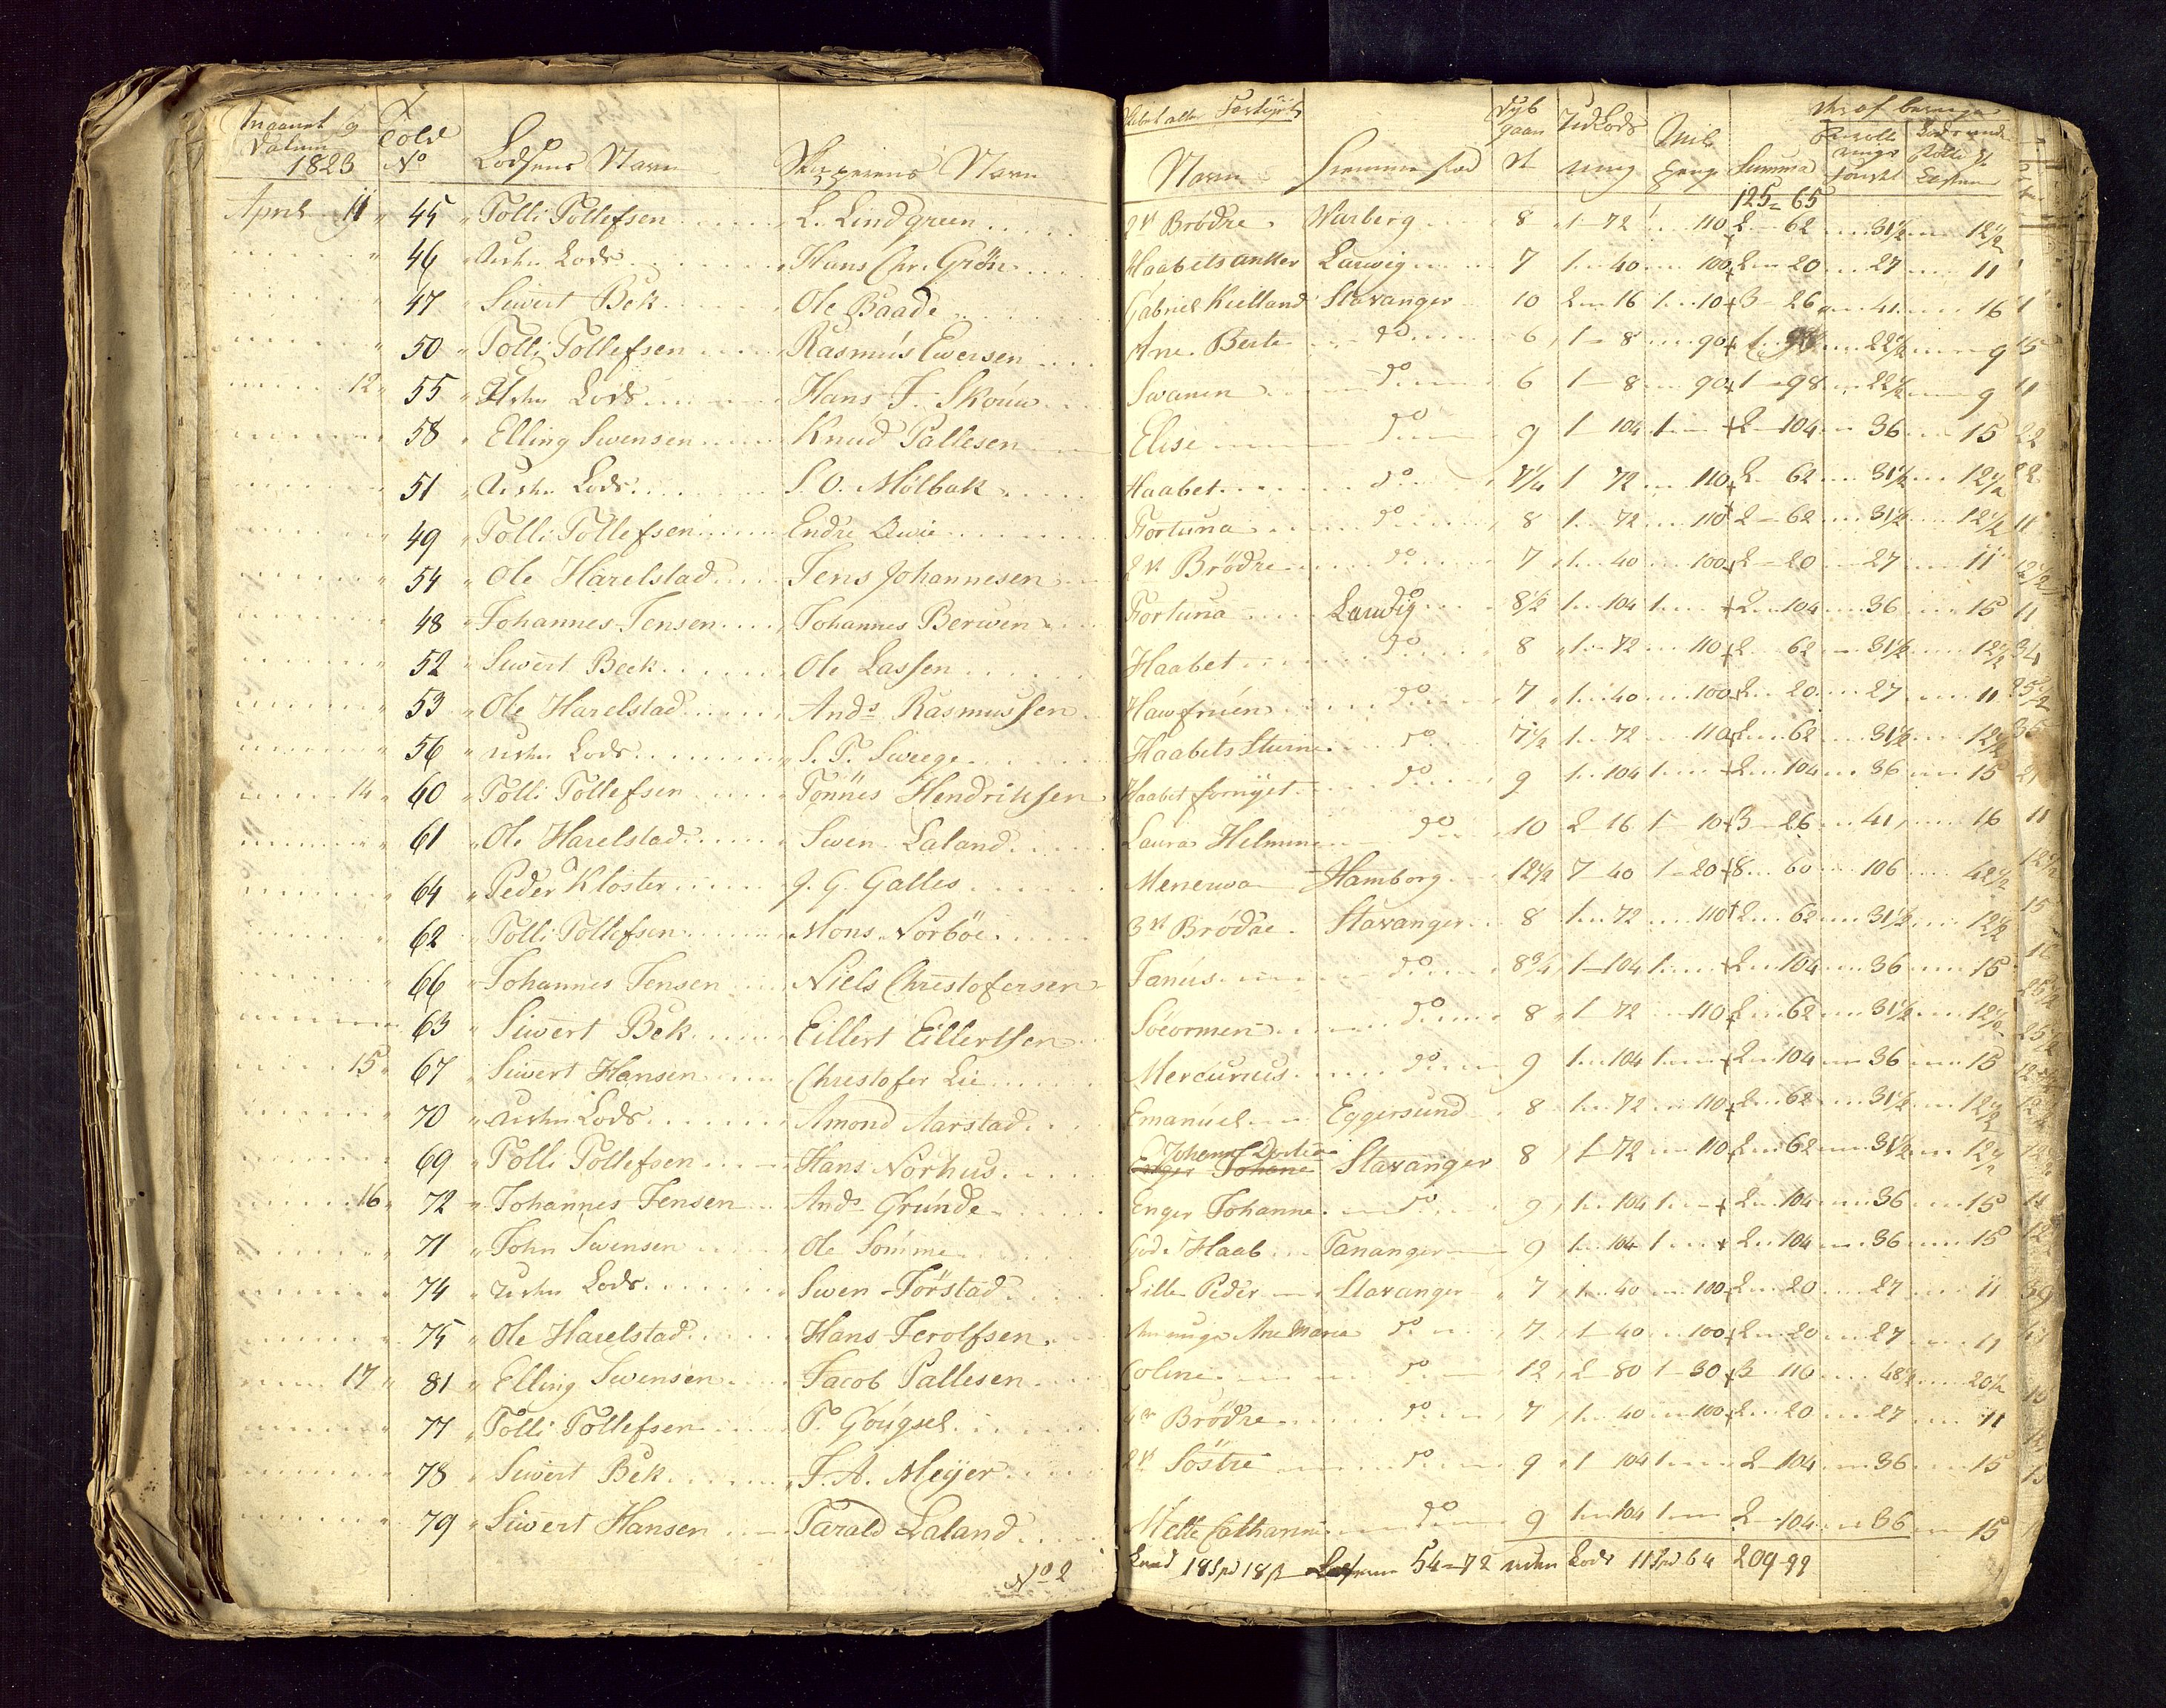 Datum Told
1823 No Lodsens Navn Skipperens Navn Navn Hiemmestæd Summa
125=65
April 11 45 Tolli Tollefsen L. Lindgreen 2de Brödre Warberg 8 1-72 110 2-62 31½ 12½
46 Uden Lods Hans Chr. Grön Haabets anker Laurvig 7 1-40 100 2-20 27 11
47 Siwert Bek Ole Baade Gabriel Kielland Stavanger 10 2-16 1-10 3-26 41 16
50 Tolli Tollefsen Rasmus Ewersen Ane Berte do 6 1-8 90 1-98 22½ 9
12 55 Uden Lods Hans J. Skouw Swanen do 6 1-8 90 1-98 22½ 9
58 Elling Swensen Knud Pallesen Elise do 9 1-104 1 2-104 36 15
51 Uden Lods S O. Mölbak Haabet do 7¼ 1-72 110 2-62 31½ 12½
49 Tolli Tollefsen Endre Qwie Fortuna do 8 1-72 110 2-62 31½ 12½
54 Ole Harelstad Jens Johannesen 2de Brödre do 7 1-40 100 2-20 27 11
48 Johannes Jensen Johannes Berwen Fortuna Laurvig 8½ 1-104 1 2-104 36 15
52 Siwert Beck Ole Lassen Haabet do 8 1-72 110 2-62 31½ 12½
53 Ole Harelstad Ands Rasmussen Hawfruen do 7 1-40 100 2-20 27 11
56 Uden Lods S. T. Sweege Haabets Stierne do 7½ 1-72 110 2-62 31½ 12½
14 60 Tolli Tollefsen Tönnes Hendriksen Haabet fornÿet do 9 1-104 1 2-104 36 15
61 Ole Harelstad Swen Laland Laura Helmine do 10 2-16 1-10 3-26 41 16
64 Peder Kloster J. G. Galles Menerwa Hamborg 12½ 7-40 1-20 8-60 106 42½
62 Tolli Tollefsen Mons Norböe 3de Brödre Stavanger 8 1-72 110 2-62 31½ 12½
66 Johannes Jensen Niels Christofersen Janus do 8¾ 1-104 1 2-104 36 15
63 Siwert Bek Eillert Eillertsen Söeormen do 8 1-72 110 2-62 31½ 12½
15 67 Siwert Hansen Christofer Lie Mercurius do 9 1-104 1 2-104 36 15
70 Uden Lods Amond Aarstad Emanuel Eggersund 8 1-72 110 2-62 31½ 12½
69 Tolli Tollefsen Hans Norhus Johanne Dortea Stavanger 8 1-72 110 2-62 31½ 12½
16 72 Johannes Jensen Ands Grunde Enger Johanne do 9 1-104 1 2-104 36 15
71 John Swensen Ole Somme Gode Haab Tananger 9 1-104 1 2-104 36 15
74 Uden Lods Swen Törstad Lille Peder Stavanger 7 1-40 100 2-20 27 11
75 Ole Harelstad Hans Ferolfsen Ane Marie do 7 1-40 100 2-20 27 11
17 81 Elling Swensen Jacob Pallesen Coline do 12 2-80 1-30 3-110 48½ 20½
77 Tolli Tollefsen T. Gougsel 4de Brödre do 7 1-40 100 2-20 27 11
78 Siwert Bek J. A. Meÿer 2de Söstre do 9 1-104 1 2-104 36 15
79 Siwert Hansen Tarald Laland Mette Cathrine do 9 1-104 1 2-104 36 15
No 2 18 Spd 18 54=72 uden Lods 11 Spd 64 209-99